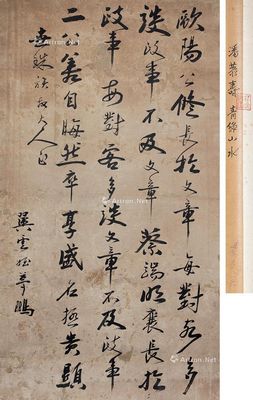 歐陽公修長於文章每對客多
談政事不及文章蔡端明襄長於
政事每對客多談文章不及政事
二公善自晦然卒享盛名極貴顯
世 族 大人正
巽雲 鵬
潘恭壽 青綠山水